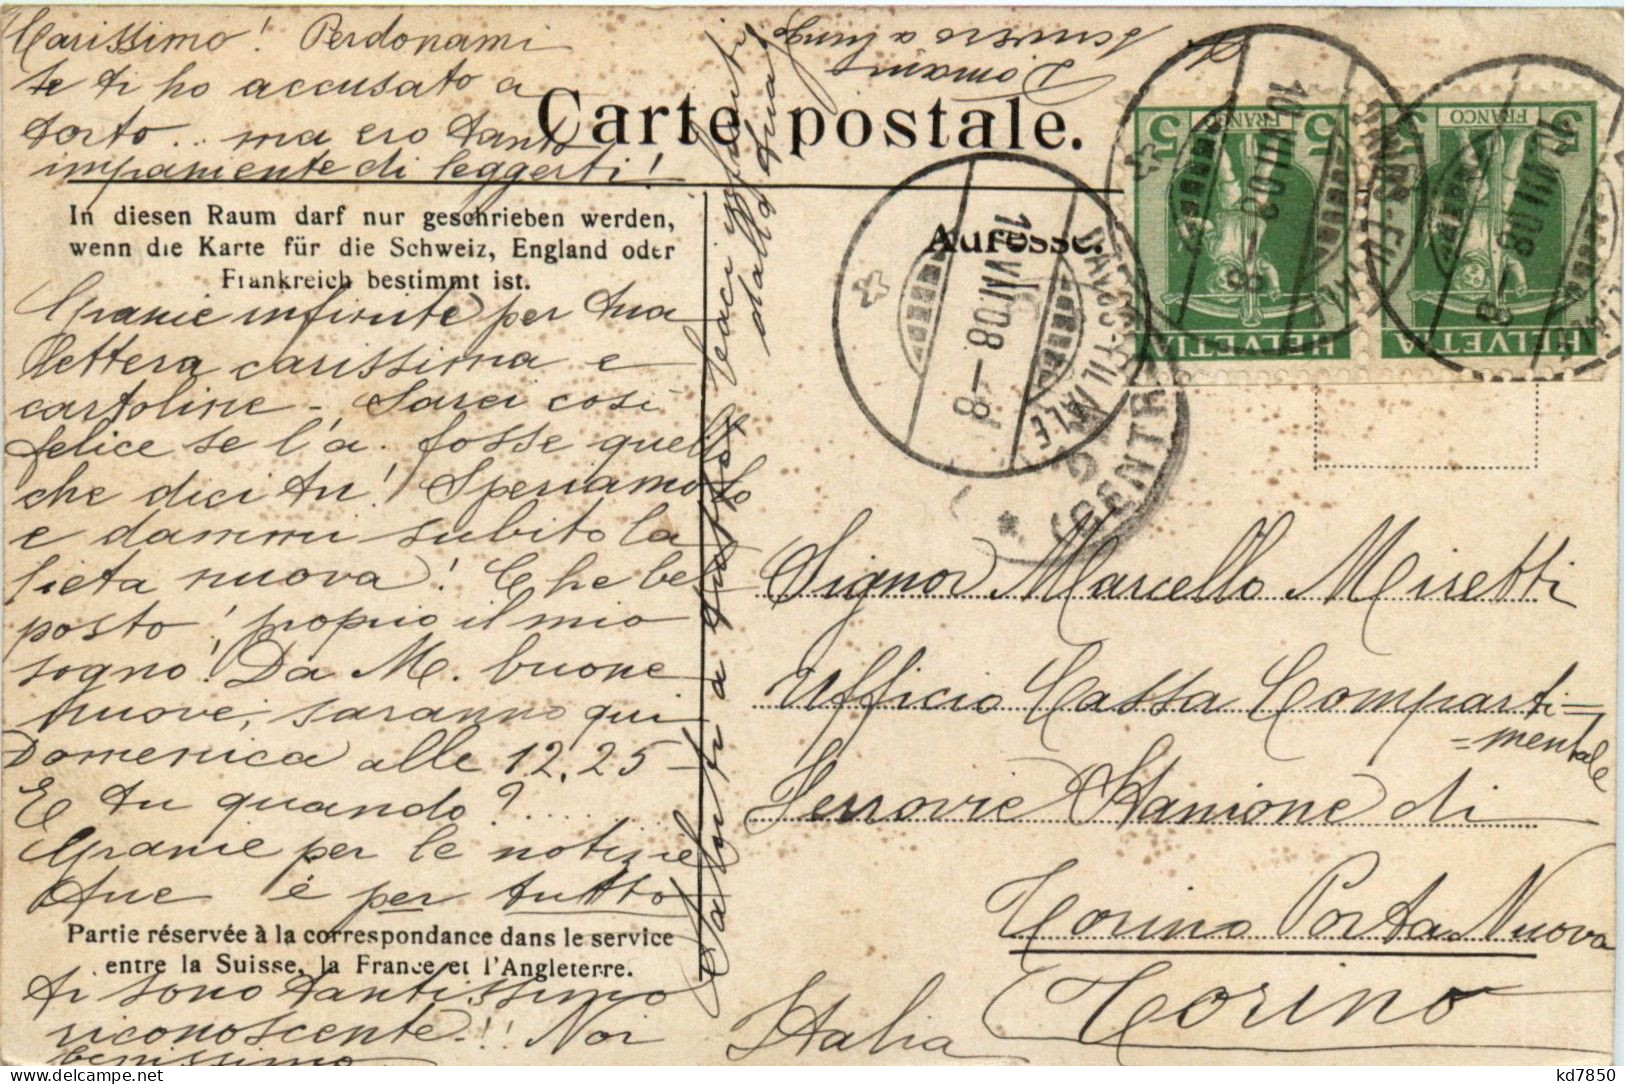 Carissimo! Perdonami
se ti ho accusato a
torto.. ma ero tanto
impaniente di leggerti!
Domani
scrivero a lungo
Carte postale.
In diesen Raum darf nur geschrieben werden,
wenn die Karte für die Schweiz, England oder
Frankreich bestimmt ist.
Adresse.
Granie infinite per tua
lettera carissima e
cartoline - Sarei così
felice se l'a. fosse quell
che dici tu! Speriamolo
e dammi subito la
lieta nuova! Che bel
posto, proprio il mio
sogno! Da M. buone
nuove; saranno qui
Domenica alle 12.25 -
E tu quando?......
Granie per le notizie
Que è per tutto
Partie réservée à la correspondance dans le service
entre la Suisse, la France et l'Angleterre.
ti sono tantissimo
riconoscente!! Noi
benissimo
Saluti a quattro baci
dalla tua
FRANCO
5 5
HELVETIA
FRANCO
5
HELVETIA
10.VII.08-8
10.VII.08-8
10.VII.08-8
(CENTR
Signor Marcello Misetti
Ufficio Cassa Comparti=
=mentale
Ferrovie Stanione di
Torino Porta Nuova
Torino
Italia
kd7850